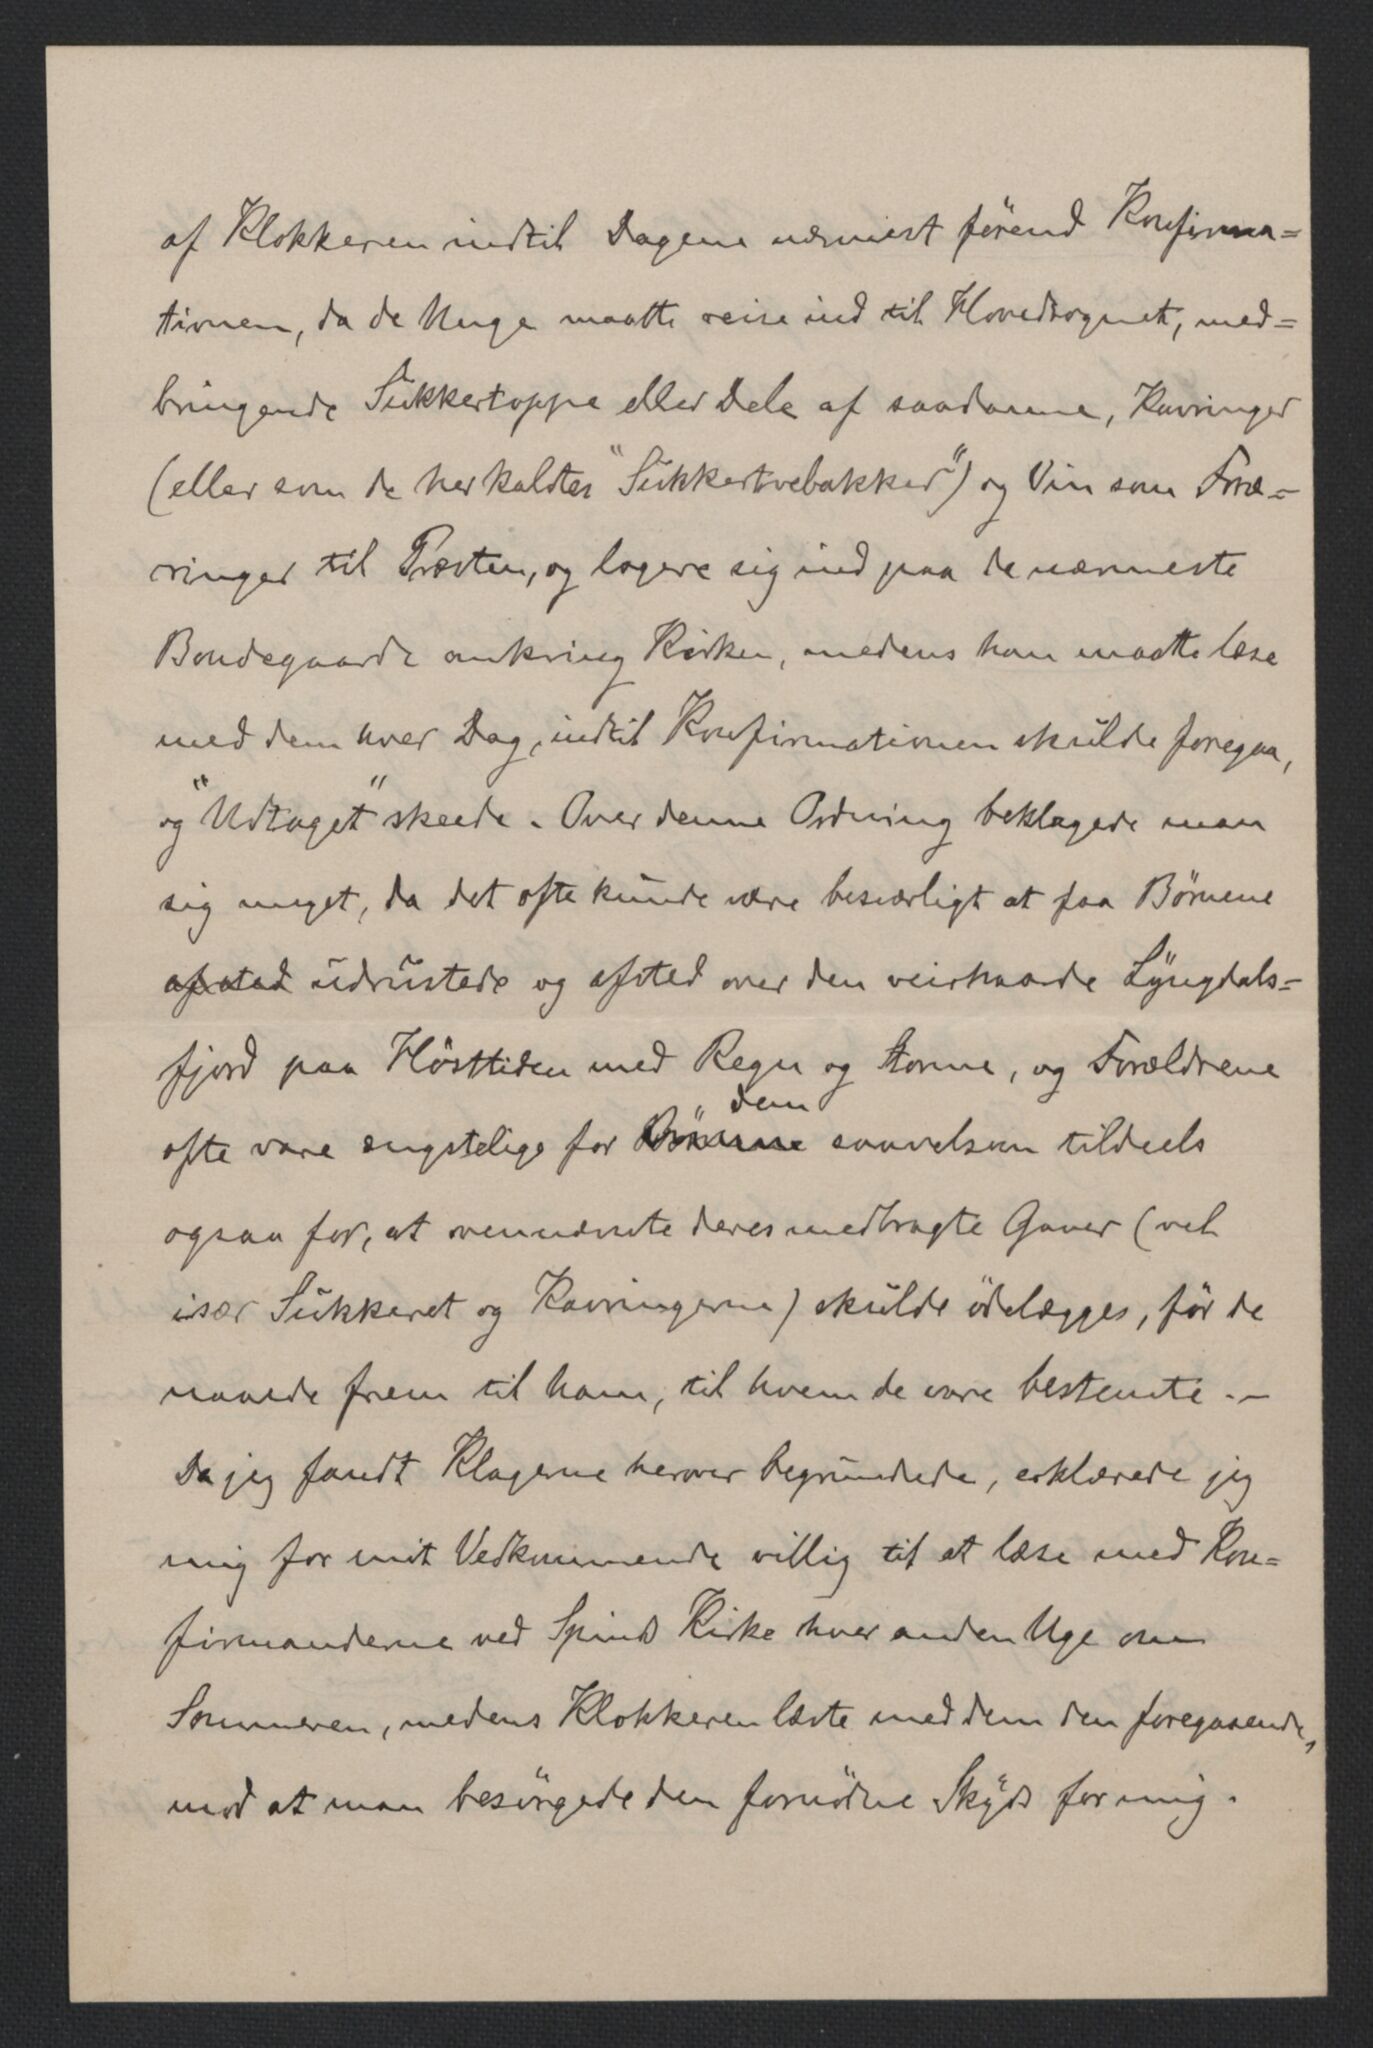 af Klokkeren indtil Dagene nærmest förend Konfirma=
tionen, da de Unge maatte reise ind til Hovedsognet, med=
bringende Sukkertoppe eller Dele af saadanne, Kavringer
(eller som de her kaldtes "Sukkertvebakker") og Vin som Foræ=
ringer til Præsten, og logere sig ind paa de nærmeste
Bondegaarde omkring Kirken, medens han maatte læse
med dem hver Dag, indtil Konfirmationen skulde foregaa,
og "Udtoget" skeede. Over denne Ordning beklagede man
sig meget, da det ofte kunde være besværligt at faa Børnene
afsted udrustede og afsted over den veirhaarde Lyngdals=
fjord paa Hösttiden med Regn og Storme, og Forældrene
ofte vare ængstelige for Börnene dem saavelsom tildeels
ogsaa for, at ovennævnte deres medbragte Gaver (vel
især Sukkeret og Kavringerne) skulde ödelægges, för de
naaede frem til ham, til hvem de vare bestemte. –
Da jeg fandt Klagerne herover begrundede, erklærede jeg
mig for mit Vedkommende villig til at læse med Kon=
firmanderne ved Spinds Kirke hver anden Uge om
Sommeren, medens Klokkeren læste med dem den foregaaende,
mod at man besörgede den fornödne Skyds for mig.